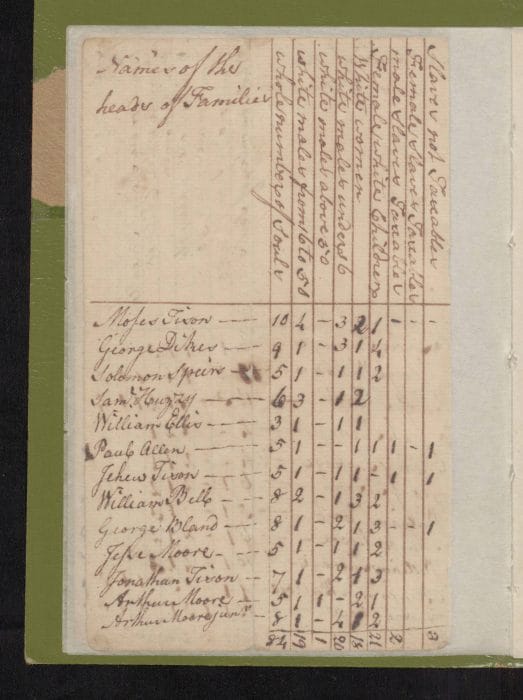 Names of the
heads of Families
whole number of Souls
white males from 16 to 50
white males above 50
white males under 16
White women
Female white Children
male Slaves Taxables
Female Slaves Taxables
Slaves not Taxables
Moses Tison — 10 4 - 3 2 1 - - -
George Dikes - 9 1 - 3 1 4
Solomon Speirs 5 1 - 1 1 2
Sam.l Huzzy 6 3 - 1 2
William Ellis - 3 1 - 1 1
Paul Allen - 5 1 - - 1 1 1 - 1
Jehew Tison - 5 1 - 1 1 - 1 1
William Bell - - 8 2 - 1 3 2
George Bland - 8 1 - 2 1 3 - - 1
Jesse Moore - 5 1 - 1 1 2
Jonathan Tison - 7 1 - 2 1 3
Arthur Moore - 5 1 1 - 2 1
Arthur Moore junr 8 1 - 4 1 2
84 19 1 20 18 21 2 3